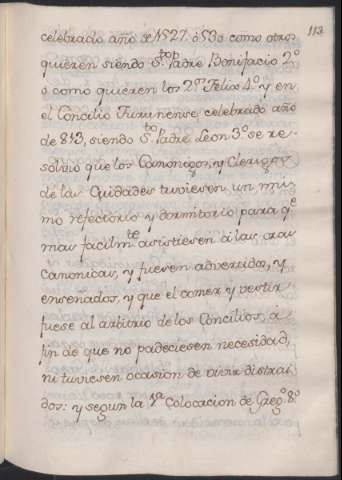 113
celebrado año de 527. ó 530 como otros
quieren siendo S.to P. Padre Bonifacio 2.º
o como quieren los 2.os Felix 4.º y en
el Concilio Turinense, celebrado año
de 813, siendo S.to Padre Leon 3.º se re-
solvió que los Canonigos, y Clerigos
de las Ciudades tuviesen un mis-
mo refectorio y dormitorio para q.e
mas facilm.te asistiesen á las oras
canonicas, y fuesen advertidos, y
enseñados, y que el comer y vestir
fuese al arbitrio de los Concilios, á
fin de que no padeciesen necesidad,
ni tuviesen ocasion de vivir distrai-
dos: y segun la 1.a Colocacion de Greg.º 8.º